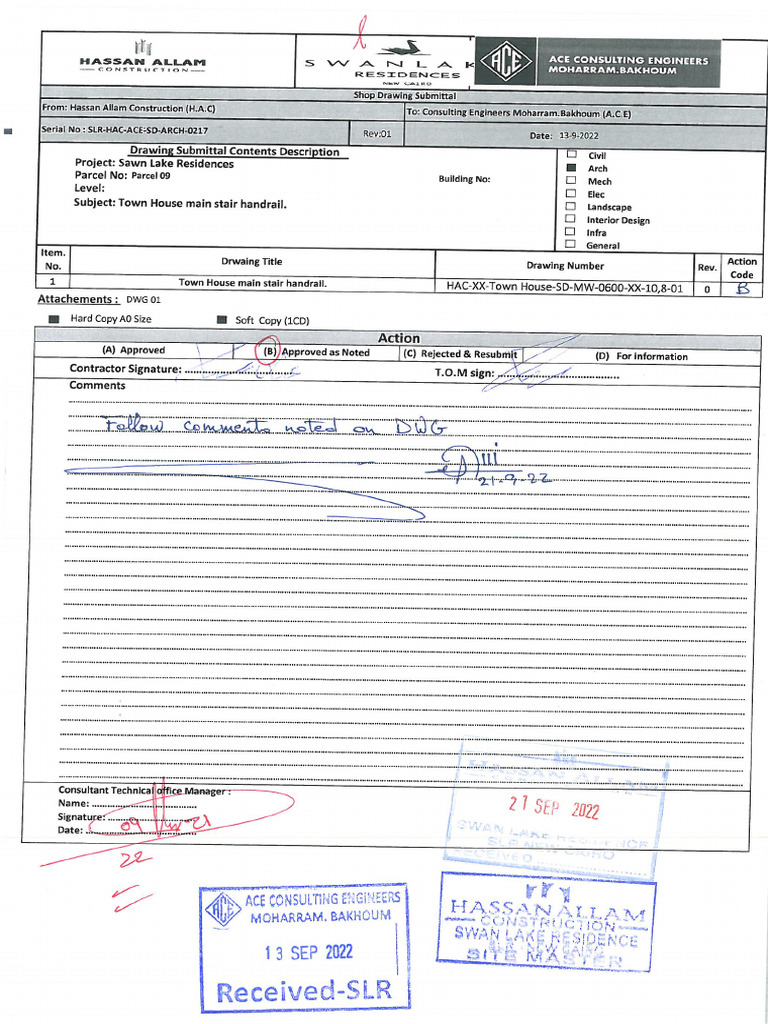 HASSAN ALLAM
CONSTRUCTION
SWANLAK
RESIDENCES
NEW CAIRO
ACE
ACE CONSULTING ENGINEERS
MOHARRAM.BAKHOUM
Shop Drawing Submittal
From: Hassan Allam Construction (H.A.C)
To: Consulting Engineers Moharram.Bakhoum (A.C.E)
Serial No : SLR-HAC-ACE-SD-ARCH-0217
Rev:01
Date: 13-9-2022
Drawing Submittal Contents Description
Project: Sawn Lake Residences
Parcel No: Parcel 09
Building No:
Level:
Subject: Town House main stair handrail.
Civil
Arch
Mech
Elec
Landscape
Interior Design
Infra
General
Item. No.
Drwaing Title
Drawing Number
Rev.
Action Code
1
Town House main stair handrail.
HAC-XX-Town House-SD-MW-0600-XX-10,8-01
0
B
Attachements : DWG 01
Hard Copy A0 Size
Soft Copy (1CD)
Action
(A) Approved
(B) Approved as Noted
(C) Rejected & Resubmit
(D) For Information
Contractor Signature:
T.O.M sign:
Comments
Follow comments noted on DWG
21-9-22
Consultant Technical office Manager :
Name:
Signature:
Date:
09
21
22
HASSAN ALLAM
21 SEP 2022
SWAN LAKE RESIDENCE
SLR NEW CAIRO
RECEIVED
ACE
ACE CONSULTING ENGINEERS
MOHARRAM. BAKHOUM
13 SEP 2022
Received-SLR
HASSAN ALLAM
CONSTRUCTION
SWAN LAKE RESIDENCE
SLR NEW CAIRO
SITE MASTER